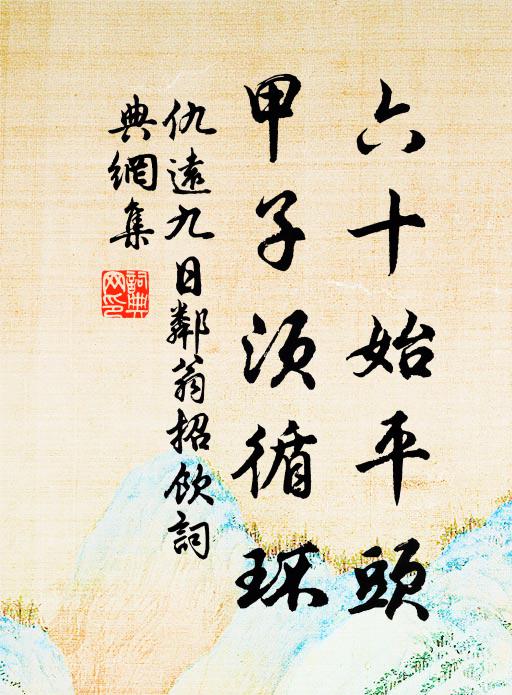 六十始平頭
甲子須循環
仇遠九日鄰翁招飲詞
典網集
詞典網印